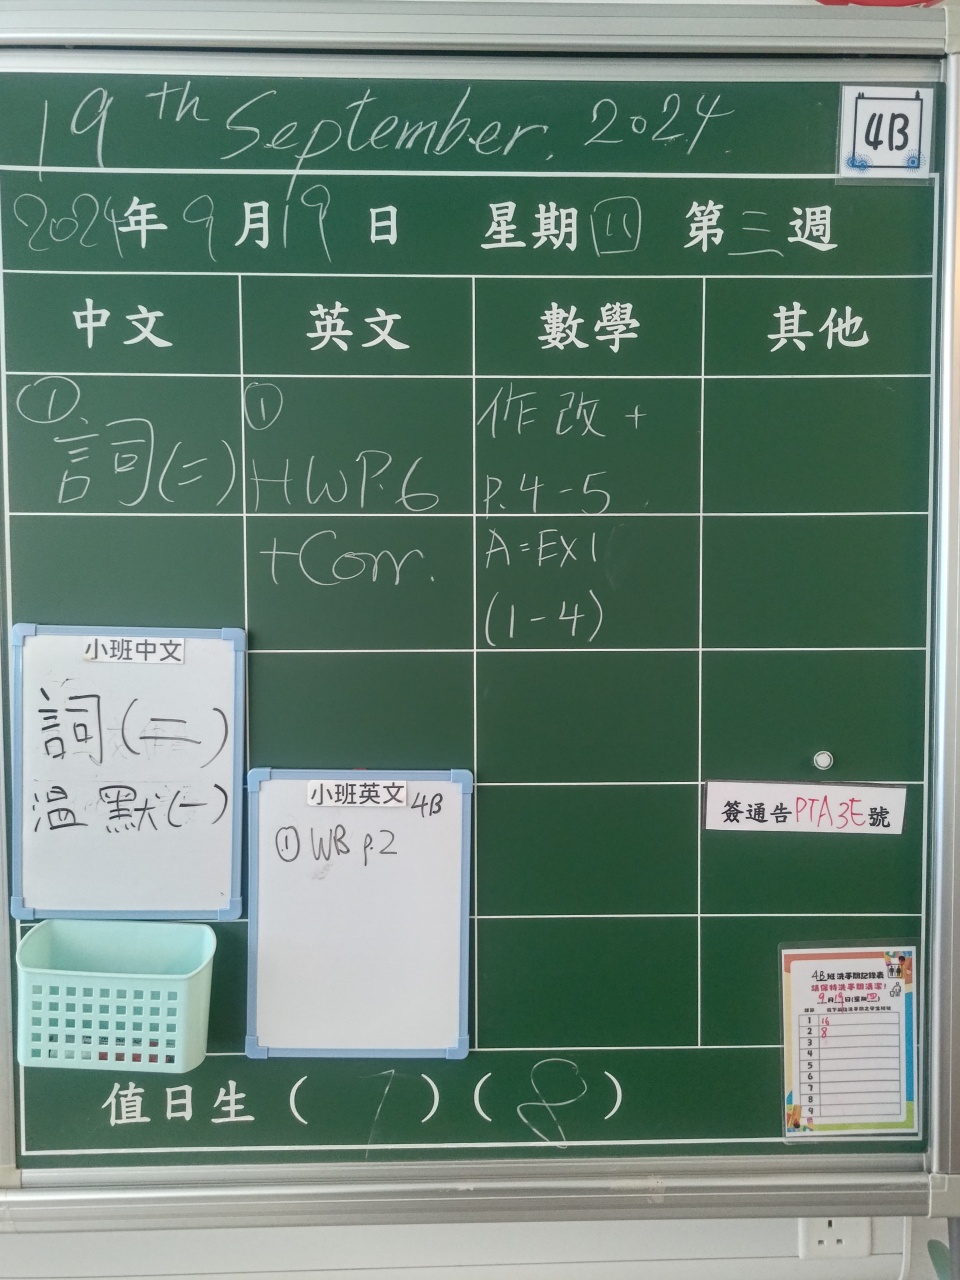 19th September, 2024.
4B
2024年9月19日 星期四 第三週
中文 英文 數學 其他
①
詞(二)
①
HWP.6
+Corr.
作改+
P.4-5
A=EX1
(1-4)
小班中文
詞(二)
溫默(一)
小班英文 4B
① WB p.2
簽通告PTA3E號
4B班洗手間記錄表
請保持洗手間清潔!
9月19日(星期四)
1 16
2 8
3
4
5
6
7
8
9
值日生 (7) (8)